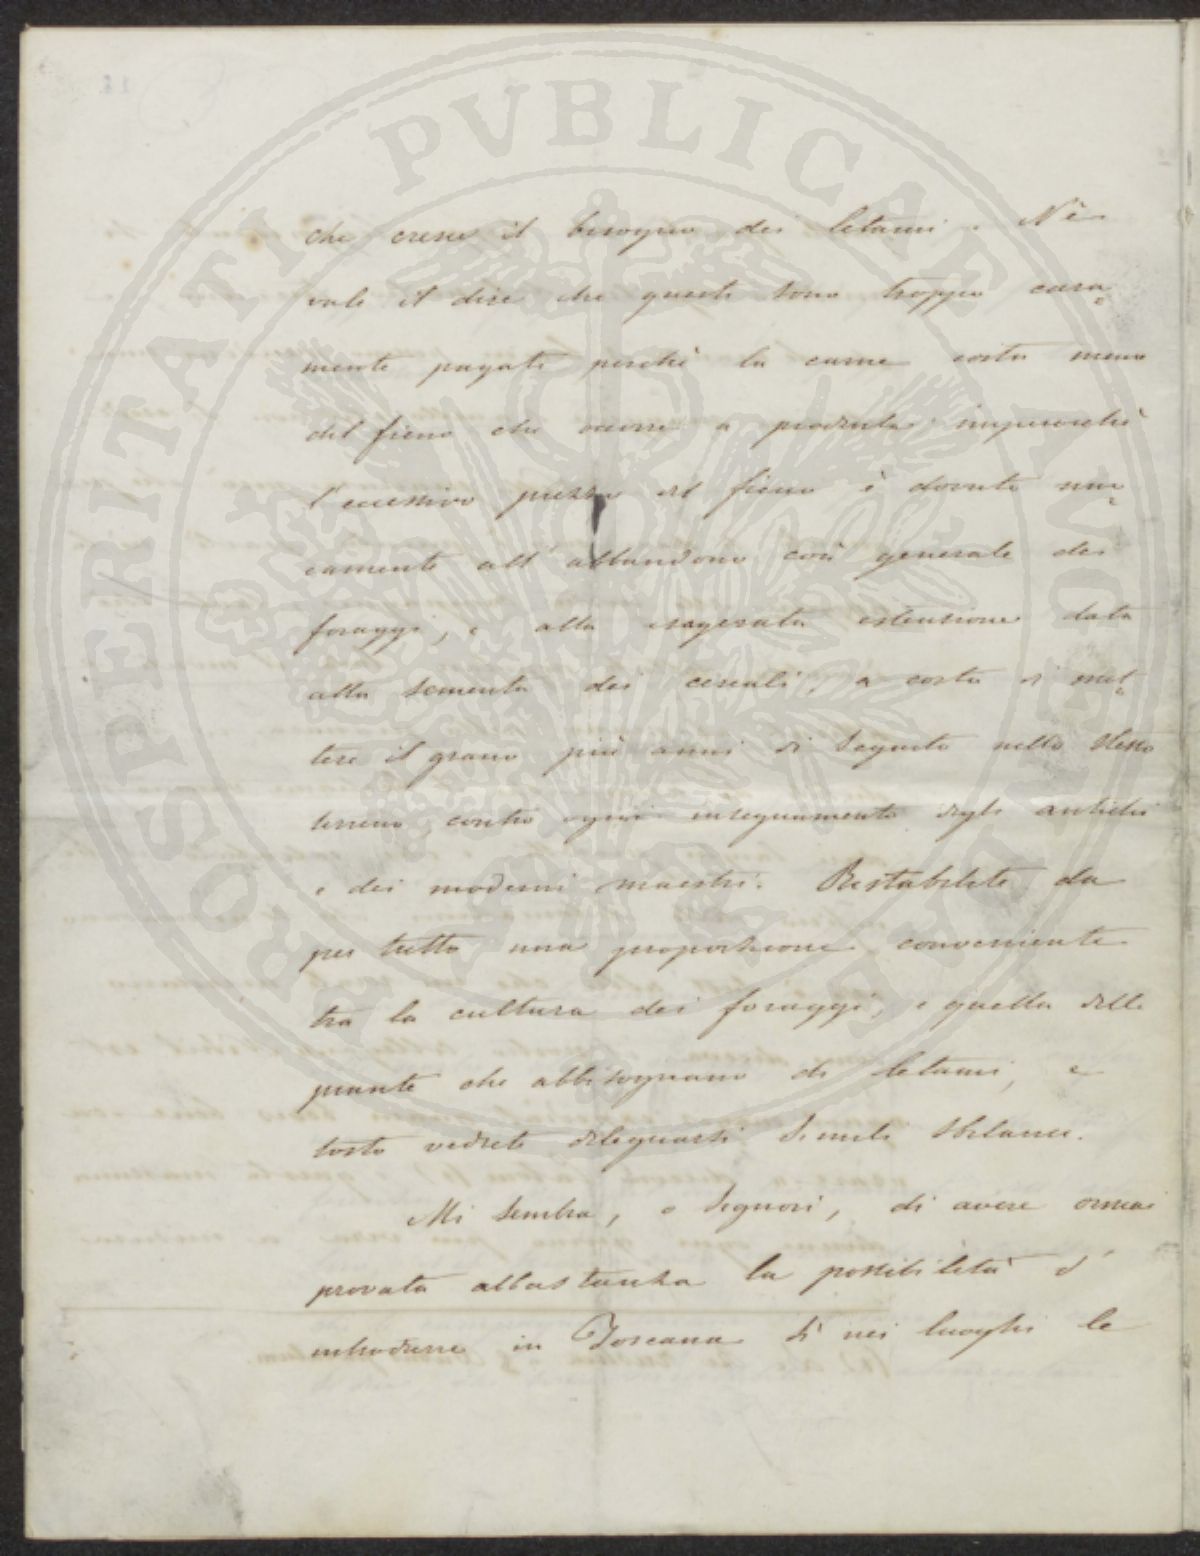 PROSPERITATI PVBLICAE AVGENDAE
che cresce il bisogno dei letami. Nè
vale il dire che questi sono troppo cara=
mente pagati perchè la carne costa meno
del fieno che occorre a produrla imperocchè
l'eccessivo prezzo del fieno è dovuto uni=
camente all'abbandono così generale dei
foraggi, e alla esagerata estensione data
alla sementa dei cereali, a costo di met=
tere il grano più anni di seguito nello stesso
terreno contro ogni insegnamento degli antichi
e dei moderni maestri. Ristabilite da
per tutto una proporzione conveniente
tra la cultura dei foraggi, e quella delle
piante che abbisognano di letami, e
tosto vedrete dileguarsi simile sbilancio.
Mi sembra, o Signori, di avere ormai
provata abbastanza la possibilità d'
introdurre in Toscana sì nei luoghi le